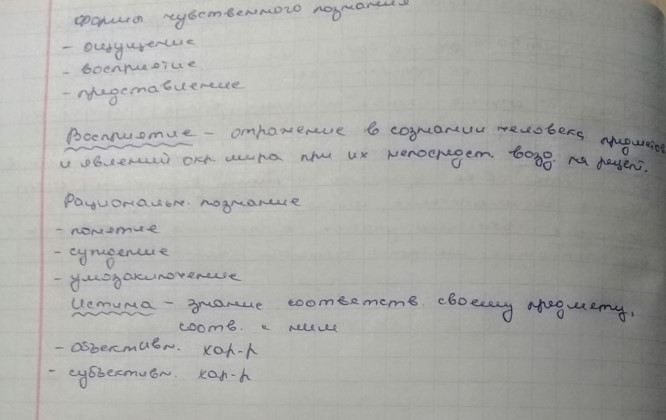 Формы чувственного познания
- ощущение
- восприятие
- представление
Восприятие - отражение в сознании человека предметов
и явлений окр. мира при их непосредст. возд. на рецеп.
Рациональн. познание
- понятие
- суждение
- умозаключение
Истина - знание соответств. своему предмету,
соотв. с ним
- объективн. хар-р
- субъективн. хар-р